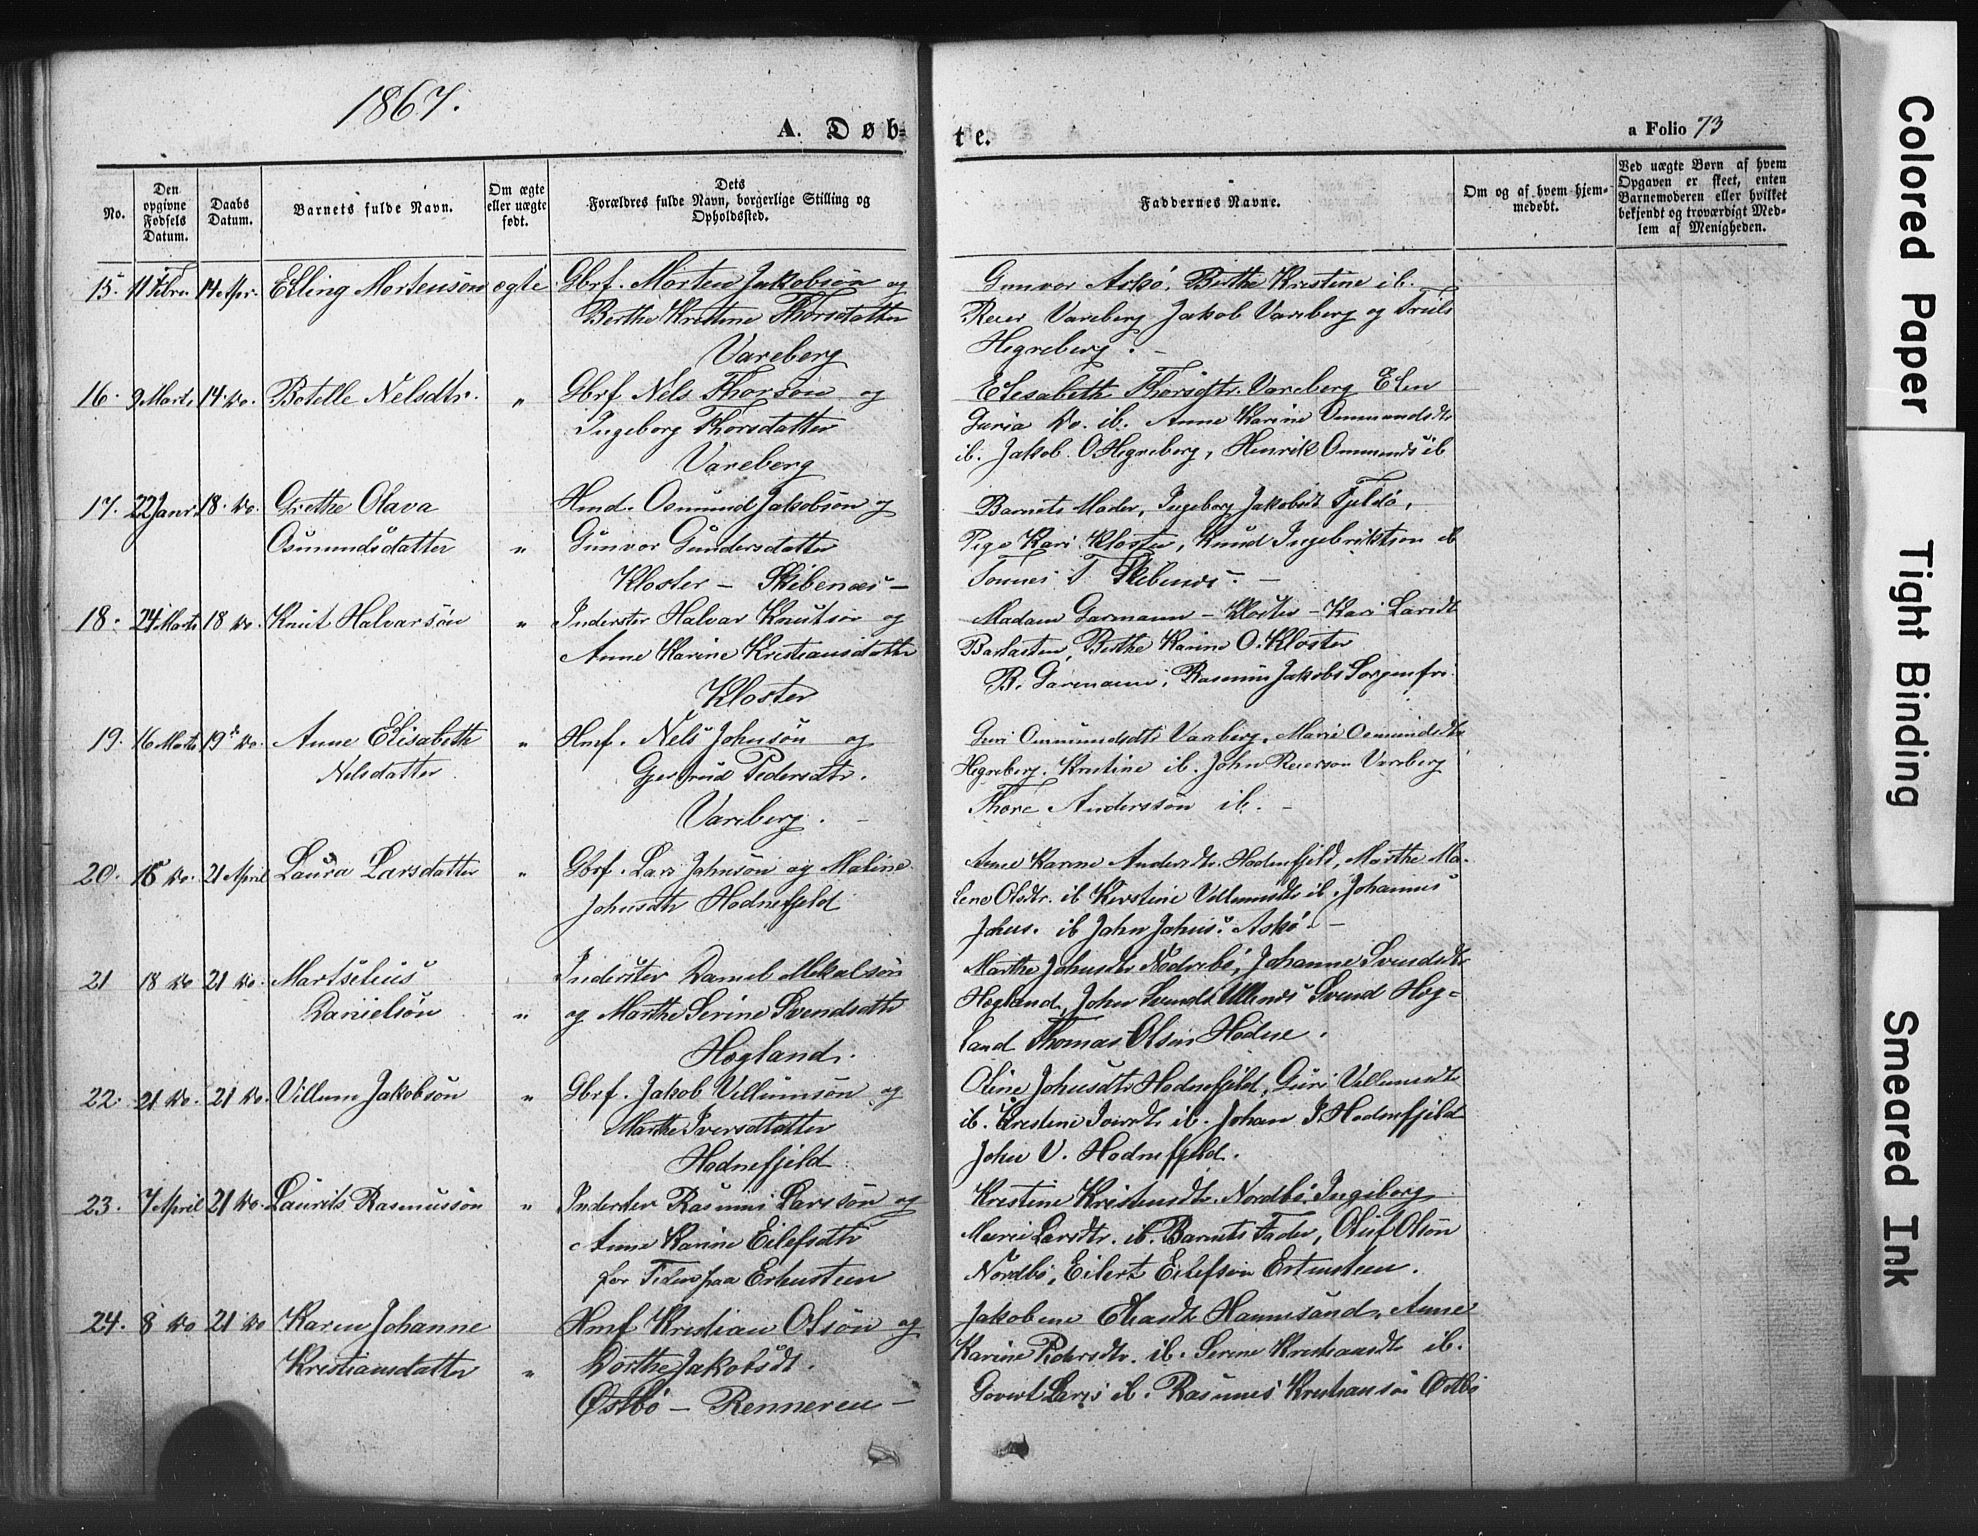 1867.
A. Døb=
te.
a Folio 73
No.
Den opgivne Fødsels Datum.
Daabs Datum.
Barnets fulde Navn.
Om ægte eller uægte født.
Dets Forældres fulde Navn, borgerlige Stilling og Opholdssted.
Faddernes Navne.
Om og af hvem hjem-medøbt.
Ved uægte Børn af hvem Opgaven er skeet, enten Barnemoderen eller hvilket bekjendt og troværdigt Medlem af Menigheden.
15. 11 Febru. 14 Apr. Elling Mortensøn ægte Gbrf. Morten Jakobsøn og
Berthe Kristine Thorsdatter
Vareberg
Gunvor Askø, Berthe Kristine ib.
Reier Vareberg Jakob Vareberg og Truls
Hegreberg. -
16. 9 Marts 14 do. Botelle Nelsdtr. " Gbrf Nels Thorsøn og
Ingeborg Thorsdatter
Vareberg
Elesabeth Thorsdtr. Vareberg Elen
Guria do. ib. Anne Karine Ommundsdtr
ib. Jakob O Hegreberg, Henrik Ommunds ib
17. 22 Janr. 18. do. Grethe Olava
Osmundsdatter " Hmd. Osmund Jakobsøn og
Gunvor Gundersdatter
Kloster - Skibenæs -
Barnets Moder, Ingeborg Jakobsdt Fjeldø,
Pige Kari Kloster, Knud Ingebriktsen ib
Tønnes T Skibenæs. -
18. 24 Marts 18 do. Knut Halvarsøn " Inderster Halvar Knutsøn og
Anne Karine Kristiansdatter
Kloster
Madam Garmann - Kloster - Kari Larsdt
Berthe Karine O. Kloster
B. Garmann, Rasmus Jakobs Sorgenfri.
19. 16 Marts 19 do. Anne Elisabeth
Nelsdatter " Hmf. Nels Johnsøn og
Gjertrud Pedersdtr.
Vareberg. -
Guri Ommundsdtr Vareberg, Marie Osmundsdtr
Hegreberg. Kristine ib. John Reierson Vareberg
Thore Anderssøn ib. -
20. 15 do. 21 April Laura Larsdatter " Gbrf. Lars Johnsøn og Maline
Johnsdtr Hodnefjeld
Anne Karine Andersdtr Hodnefjeld, Marthe Ma-
lene Olsdtr. ib Kirstine Villumsdtr ib. Johannes
Johns. ib John Johns. Askø. -
21 18 do 21 do. Martselius
Danielsøn " Inderster Daniel Mekalsøn
og Marthe Serine Svendsdtr
Hogland.
Marthe Johnsdtr Nødvebø, Johanne Svendsdtr
Hogland, John Svends Svend Hog-
land Thomas Olsen Hodne.
22. 21 do. 21 do. Villum Jakobsøn " Gbrf. Jakob Villumsøn og
Marthe Iversdatter
Hodnefjeld.
Oline Johnsdtr Hodnefjeld, Guri Villumsdtr
ib. Kristine Iversdtr ib. Johan J Hodnefjeld
John V. Hodnefjeld.
23. 7 April 21 do. Laurits Rasmussøn " Inderster Rasmus Larssøn og
Anne Karine Eilefsdtr
for Tiden paa Ertensteen
Kristine Kristensdtr. Nordbø, Ingeborg
Marie Larsdtr. ib. Barnets Fader, Oluf Olsøn
Nordbø, Eilert Eilefsøn Ertensteen.
24. 8 do 21 do Karen Johanne
Kristiansdatter " Hmf Kristian Olsøn og
Dorthe Jakobsdt.
Østbø - Renneren -
Jakobine Eliasdtr Hanesand, Anne
Karine Pedersdtr. ib. Serine Kristiansdt ib.
Govert Lars ib. Rasmus Kristiansøn Østbø
Colored Paper
Tight Binding
Smeared Ink